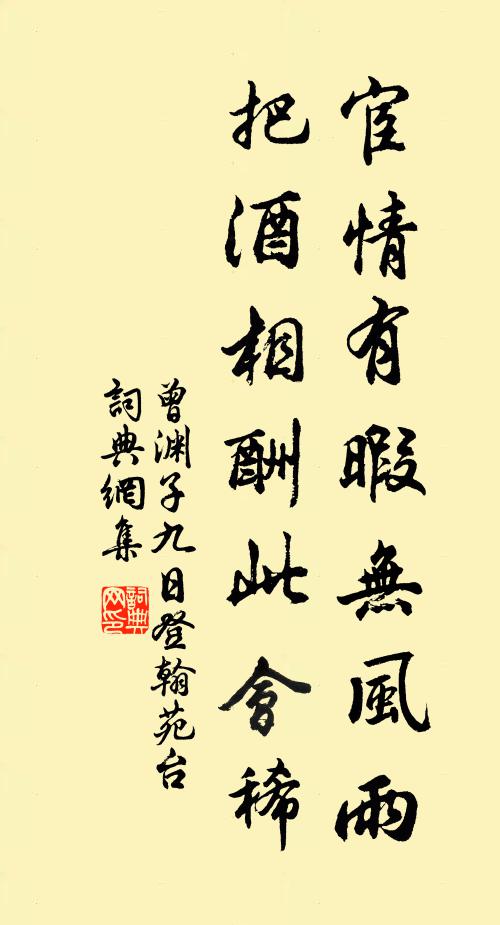 宦情有暇無風雨
把酒相酬此會稀
曾淵子九日登翰苑台
詞典網集
詞典网印